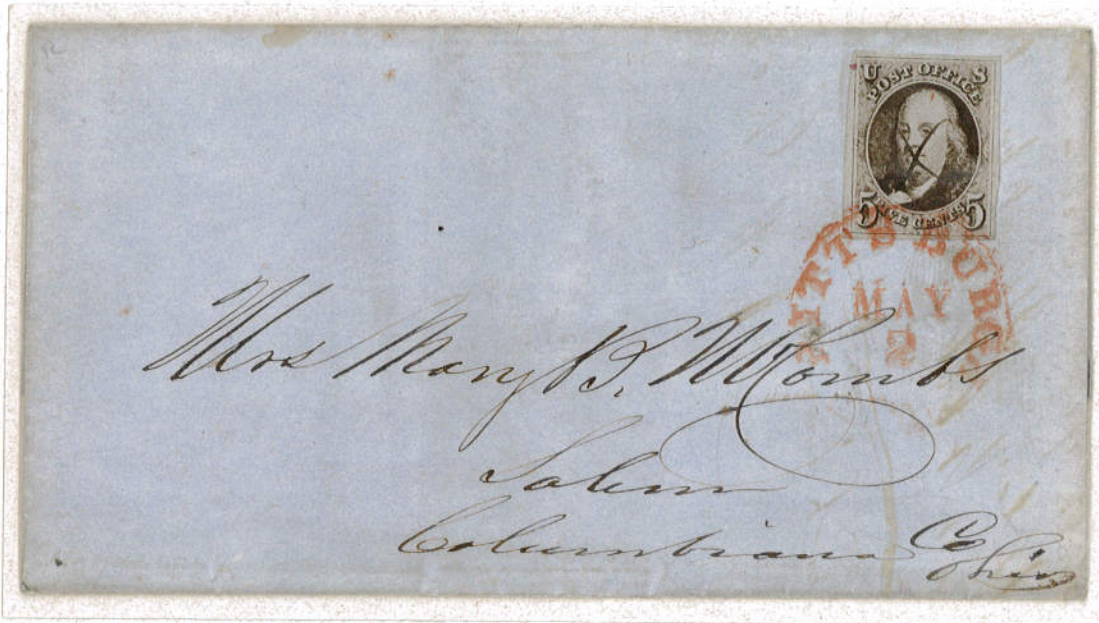 U S
POST OFFICE
5 FIVE CENTS 5
PITTSBURG
MAY
2
Mrs Mary B. McCombs
Salem
Columbiana Co
Ohio